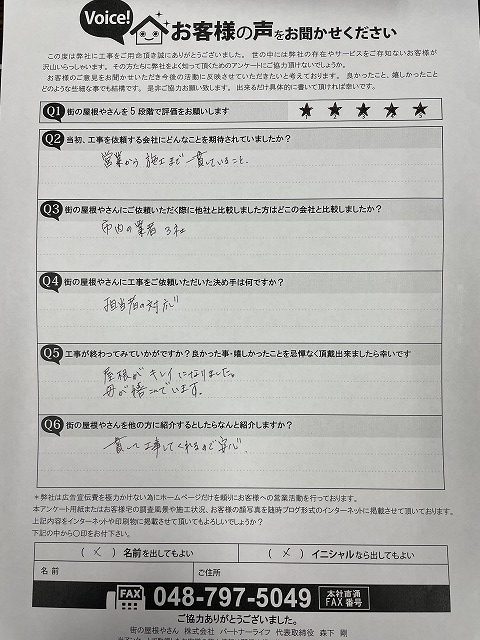 Voice!
お客様の声をお聞かせください
この度は弊社に工事をご用命頂き誠にありがとうございました。世の中には弊社の存在やサービスをご存知ないお客様が
沢山いらっしゃいます。その方たちに弊社をよく知って頂くためのアンケートにご協力頂けないでしょうか。
お客様のご意見をお聞かせいただき今後の活動に反映させていただきたいと考えております。良かったこと、嬉しかったこと
どのような些細な事でも結構です。是非ご協力お願い致します。出来るだけ具体的に書いて頂ければ幸いです。
Q1 街の屋根やさんを5段階で評価をお願いします ★ ★ ★ ★ ★
Q2 当初、工事を依頼する会社にどんなことを期待されていましたか?
営業から施工まで一貫していること。
Q3 街の屋根やさんにご依頼いただく際に他社と比較しました方はどこの会社と比較しましたか?
市内の業者 3社
Q4 街の屋根やさんに工事をご依頼いただいた決め手は何ですか?
担当者の対応
Q5 工事が終わってみていかがですか?良かった事・嬉しかったことを忌憚なく頂戴出来ましたら幸いです
屋根がキレイになりました。
母が喜こんでいます。
Q6 街の屋根やさんを他の方に紹介するとしたらなんと紹介しますか?
一貫して工事してくれるので安心。
＊弊社は広告宣伝費を極力かけない為にホームページだけを頼りにお客様への営業活動を行っております。
本アンケート用紙またはお客様宅の調査風景や施工状況、お客様の顔写真を随時ブログ形式のインターネットに掲載させて頂いております。
上記内容をインターネットや印刷物に掲載させて頂いてもよろしいでしょうか?
下記の中から○印をお付下さい。
( × ) 名前を出してもよい ( × ) イニシャルなら出してもよい
名前 ご住所
FAX 048-797-5049 本社直通 FAX番号
ご協力ありがとうございました。
街の屋根やさん 株式会社 パートナーライフ 代表取締役 森下 剛